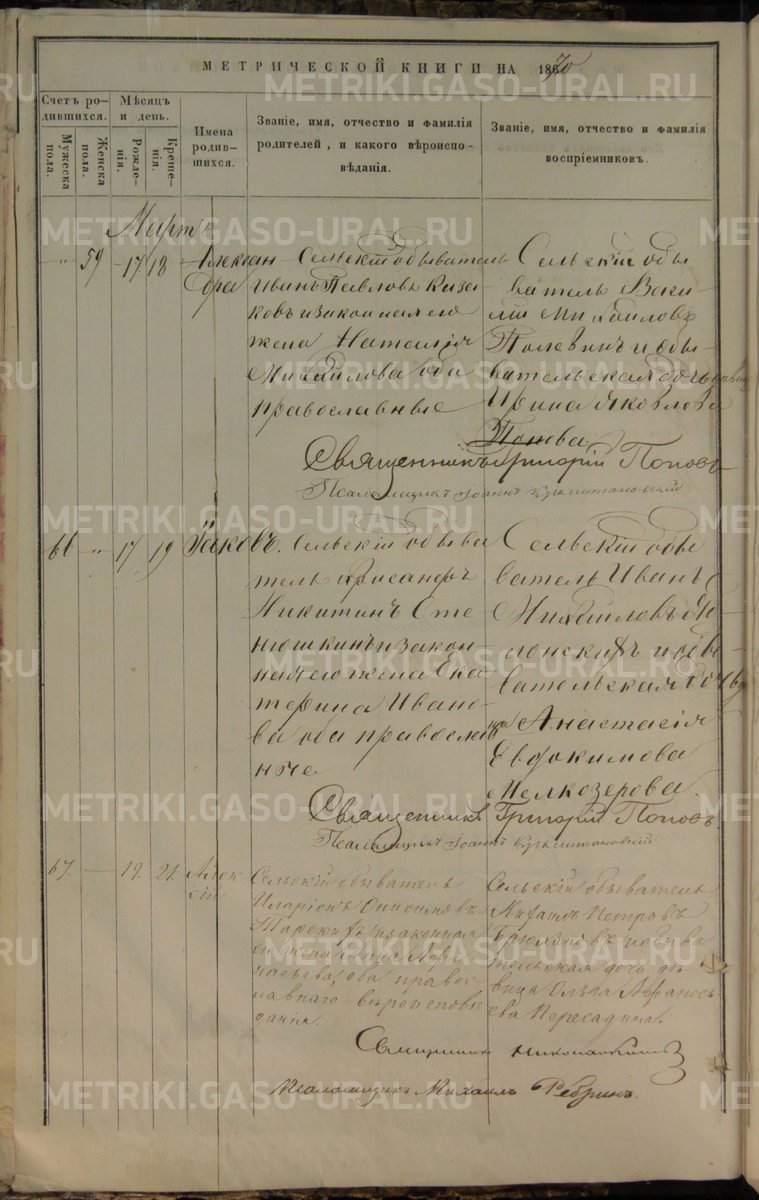 МЕТРИЧЕСКОЙ КНИГИ НА 1870
Счетъ родившихся.
Мѣсяцъ и день.
Мужеска пола.
Женска пола.
Рожденія.
Крещенія.
Имена родившихся.
Званіе, имя, отчество и фамилія
родителей, и какого вѣроиспо-
вѣданія.
Званіе, имя, отчество и фамилія
воспріемниковъ.
Мартъ
" 59 17 18 Алексан
дра
Сельскій обыватель
Иванъ Павловъ Каза
ковъ и законная его
жена Наталія
Михайлова оба
православные
Сельскій обы-
ватель Васи-
лій Михайловъ
Полевинъ и обы
вательская дочь девица
Ирина Яковлева
Попова
Священникъ Григорій Поповъ
Псаломщикъ Іоаннъ
66 " 17 19 Іаковъ.
Сельскій обыва
тель Хрисанфъ
Никитинъ Сте
нюшкинъ и закон
ная его жена Ека
терина Ивано-
ва оба православ
ные
Сельскій обы
ватель Иванъ
Михайловъ
и обы-
вательская дочь деви
ца Анастасія
Евдокимова
Мелкозерова.
Священникъ Григорій Поповъ.
Псаломщикъ Іоаннъ
67. — 19. 21. Алек
сій
Сельскій обыватель
Иларіонъ Онисимовъ
и законная
его жена
оба право
славнаго вѣроисповѣ
данія.
Сельскій обыватель
Михаилъ Петровъ
и обыва
тельская дочь дѣ
вица Ольга Афанась
ева Пересадина.
Священникъ
Псаломщикъ Михаилъ Ребринъ.
METRIKI.GASO-URAL.RU